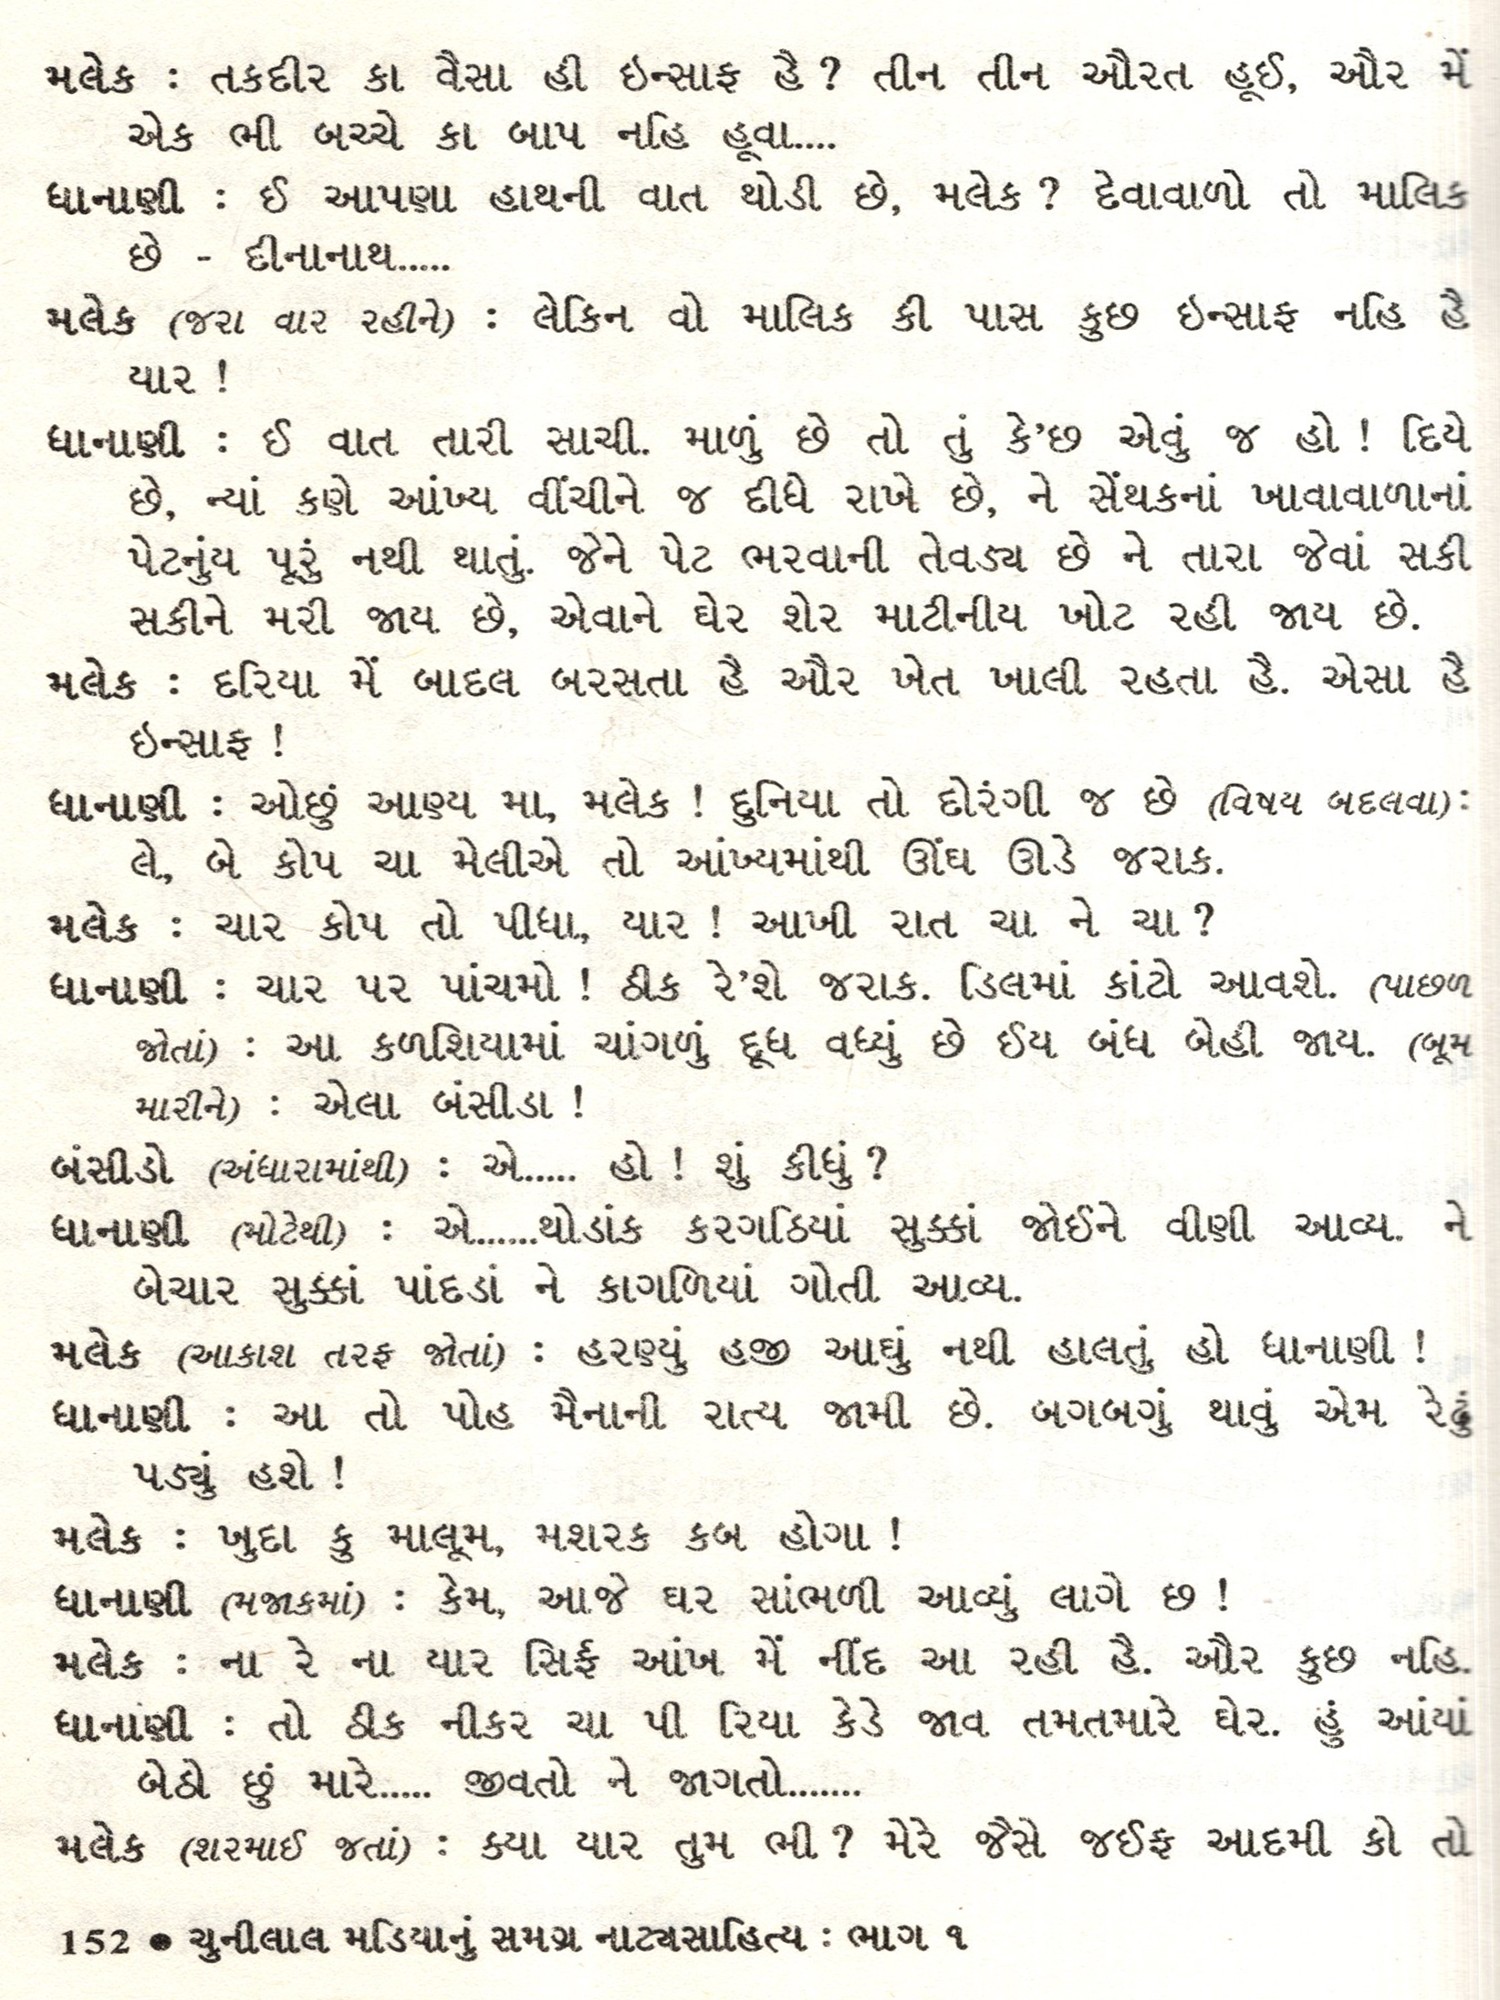 મલેક : તકદીર કા વૈસા હી ઇન્સાફ હૈ ? તીન તીન ઔરત હૂઈ, ઔર મેં
એક ભી બચ્ચે કા બાપ નહિ હૂવા....
ધાનાણી : ઈ આપણા હાથની વાત થોડી છે, મલેક ? દેવાવાળો તો માલિક
છે - દીનાનાથ.....
મલેક (જરા વાર રહીને) : લેકિન વો માલિક કી પાસ કુછ ઇન્સાફ નહિ હૈ
યાર !
ધાનાણી : ઈ વાત તારી સાચી. માળું છે તો તું કે’છ એવું જ હો ! દિયે
છે, ન્યાં કણે આંખ્ય વીંચીને જ દીધે રાખે છે, ને સેંથકનાં ખાવાવાળાનાં
પેટનુંય પૂરું નથી થાતું. જેને પેટ ભરવાની તેવડ્ય છે ને તારા જેવાં સકી
સકીને મરી જાય છે, એવાને ઘેર શેર માટીનીય ખોટ રહી જાય છે.
મલેક : દરિયા મેં બાદલ બરસતા હૈ ઔર ખેત ખાલી રહતા હૈ. એસા હૈ
ઇન્સાફ !
ધાનાણી : ઓછું આણ્ય મા, મલેક ! દુનિયા તો દોરંગી જ છે (વિષય બદલવા) :
લે, બે કોપ ચા મેલીએ તો આંખ્યમાંથી ઊંઘ ઊડે જરાક.
મલેક : ચાર કોપ તો પીધા, યાર ! આખી રાત ચા ને ચા ?
ધાનાણી : ચાર પર પાંચમો ! ઠીક રે’શે જરાક. ડિલમાં કાંટો આવશે. (પાછળ
જોતાં) : આ કળશિયામાં ચાંગળું દૂધ વધ્યું છે ઈય બંધ બેહી જાય. (બૂમ
મારીને) : એલા બંસીડા !
બંસીડો (અંધારામાંથી) : એ..... હો ! શું કીધું ?
ધાનાણી (મોટેથી) : એ......થોડાંક કરગઠિયાં સુક્કાં જોઈને વીણી આવ્ય. ને
બેચાર સુક્કાં પાંદડાં ને કાગળિયાં ગોતી આવ્ય.
મલેક (આકાશ તરફ જોતાં) : હરણ્યું હજી આઘું નથી હાલતું હો ધાનાણી !
ધાનાણી : આ તો પોહ મૈનાની રાત્ય જામી છે. બગબગું થાવું એમ રેઢું
પડ્યું હશે !
મલેક : ખુદા કુ માલૂમ, મશરક કબ હોગા !
ધાનાણી (મજાકમાં) : કેમ, આજે ઘર સાંભળી આવ્યું લાગે છ !
મલેક : ના રે ના યાર સિર્ફ આંખ મેં નીંદ આ રહી હૈ. ઔર કુછ નહિ.
ધાનાણી : તો ઠીક નીકર ચા પી રિયા કેડે જાવ તમતમારે ઘેર. હું આંયાં
બેઠો છું મારે..... જીવતો ને જાગતો.......
મલેક (શરમાઈ જતાં) : ક્યા યાર તુમ ભી ? મેરે જૈસે જઈફ આદમી કો તો
152 ● ચુનીલાલ મડિયાનું સમગ્ર નાટ્યસાહિત્ય : ભાગ ૧